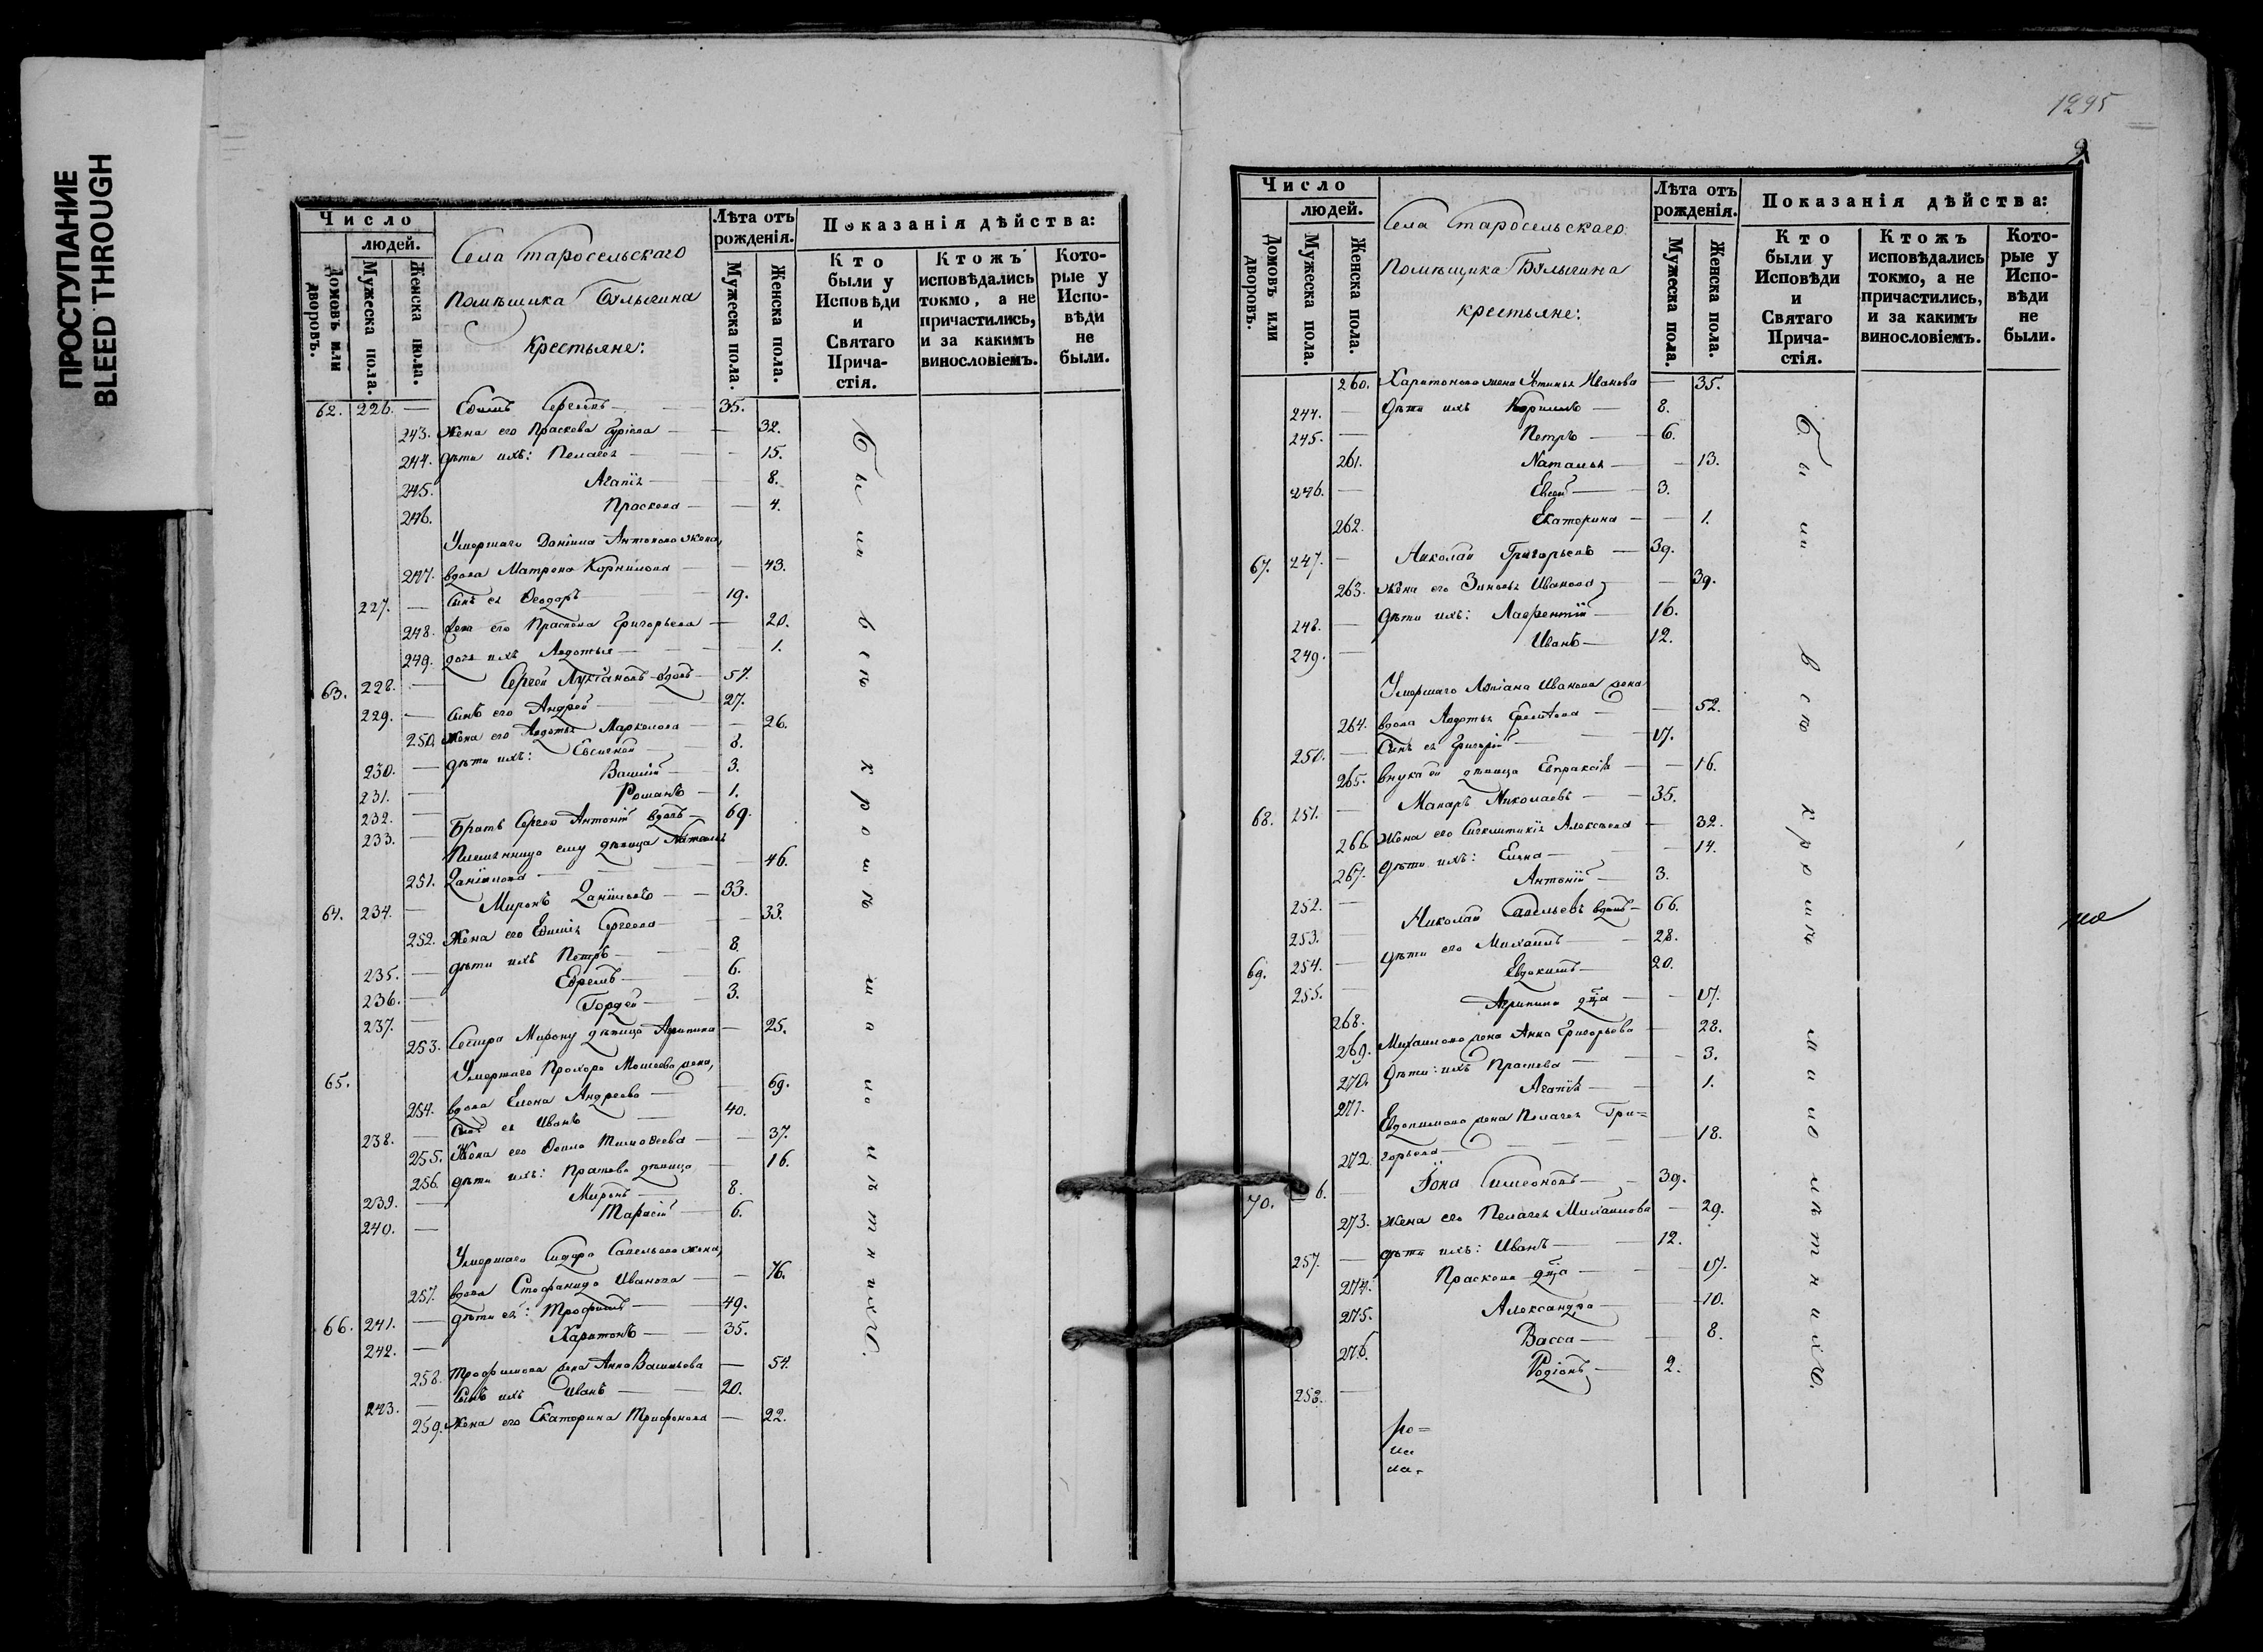 ПРОСТУПАНИЕ
BLEED THROUGH
Число
людей.
Домовъ или дворовъ.
Мужеска пола.
Женска пола.
Села Старосельскаго
Помѣщика Булыгина
Крестьяне:
Лѣта отъ рожденія.
Мужеска пола.
Женска пола.
Показанія дѣйства:
Кто были у Исповѣди и Святаго Прича-стія.
Ктожъ исповѣдались токмо, а не причастились, и за какимъ винословіемъ.
Кото-рые у Испо-вѣди не были.
62. 226. — 35.
243. Жена его Праскева — 32.
244. дѣти ихъ: Пелагея — 15.
245. Агапія — 8.
246. Праскева — 4.
Умершаго Даніила Антонова жена,
247. вдова Матрена Корнилова — 43.
227. — Сынъ ея Ѳеодоръ — 19.
248. жена его Праскева Григорьева — 20.
249. дочь ихъ Авдотья — 1.
63. 228. — Сергей Лукіановъ вдовъ — 57.
229. — Сынъ его Андрей — 27.
250. Жена его Авдотья Маркелова — 26.
230. — дѣти ихъ: Евсигней — 8.
231. — Василій — 3.
232. — Романъ — 1.
233. — Братъ Сергею Антоній вдовъ — 69.
Племянница ему дѣвица Наталья
251. Даніилова — 46.
64. 234. — Миронъ Даніиловъ — 33.
252. Жена его Сергеева — 33.
235. — дѣти ихъ Петръ — 8.
236. — Ефремъ — 6.
237. — Гордей — 3.
253. Сестра Мирону дѣвица Агрипина — 25.
65. Умершаго Прохора Моисеева жена,
254. вдова Елена Андреева — 69.
238. — Сынъ ея Иванъ — 40.
255. Жена его Тимоѳеева — 37.
256. дѣти ихъ: дѣвица — 16.
239. — Миронъ — 8.
240. — Тарасій — 6.
Умершаго Сидора Савельева жена,
257. вдова Стефанида Иванова — 76.
66. 241. — дѣти ея: Трофимъ — 49.
242. — Харитонъ — 35.
258. Трофимова жена Анна Васильева — 54.
243. — Сынъ ихъ Иванъ — 20.
259. Жена его Екатерина Трифонова — 22.
Были всѣ кромѣ малолѣтнихъ.
1295
Число
людей.
Домовъ или дворовъ.
Мужеска пола.
Женска пола.
Села Старосельскаго
Помѣщика Булыгина
крестьяне:
Лѣта отъ рожденія.
Мужеска пола.
Женска пола.
Показанія дѣйства:
Кто были у Исповѣди и Святаго Прича-стія.
Ктожъ исповѣдались токмо, а не причастились, и за какимъ винословіемъ.
Кото-рые у Испо-вѣди не были.
260. Харитонова жена Устинья Иванова — 35.
244. — Дѣти ихъ Кириллъ — 8.
245. — Петръ — 6.
261. Наталья — 13.
246. — Евсей — 3.
262. Екатерина — 1.
67. 247. — Николай Григорьевъ — 39.
263. жена его Зиновья Иванова — 39.
248. — Дѣти ихъ: Лаврентій — 16.
249. — Иванъ — 12.
Умершаго Иванова жена
264. вдова Авдотья — 52.
250. — Сынъ ея Григорій — 17.
265. внука ей дѣвица Евпраксія — 16.
68. 251. — Макаръ Николаевъ — 35.
266. Жена его Синклитикія Алексеева — 32.
267. Дѣти ихъ: Елена — 14.
252. — Антоній — 3.
253. — Николай Савельевъ вдовъ — 66.
69. 254. — Дѣти его Михаилъ — 28.
255. — Евдокимъ — 20.
268. Агрипина дѣвица — 17.
269. Михаилова жена Анна Григорьева — 28.
270. Дѣти ихъ — 3.
271. Агапія — 1.
Евдокимова жена Пелагея Гри=
272. горьева — 18.
70. 6. — Іона Симеоновъ — 39.
273. Жена его Пелагея Михаилова — 29.
257. — дѣти ихъ: Иванъ — 12.
274. Праскева дѣвица — 17.
275. Александра — 10.
276. Васса — 8.
258. — Родіонъ — 2.
Были всѣ кромѣ малолѣтнихъ.